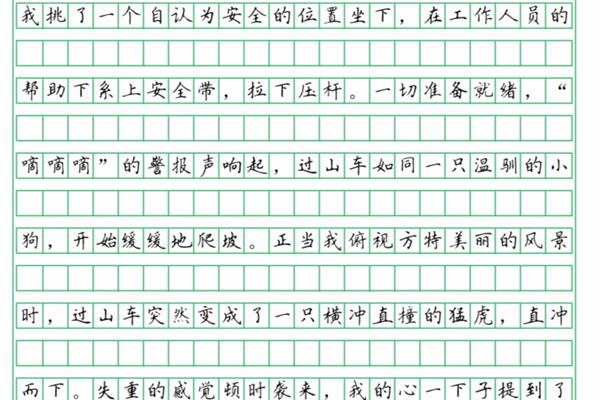 我挑了一个自认为安全的位置坐下，在工作人员的
帮助下系上安全带，拉下压杆。一切准备就绪，“
嘀嘀嘀”的警报声响起，过山车如同一只温驯的小
狗，开始缓缓地爬坡。正当我俯视方特美丽的风景
时，过山车突然变成了一只横冲直撞的猛虎，直冲
而下。失重的感觉顿时袭来，我的心一下子提到了